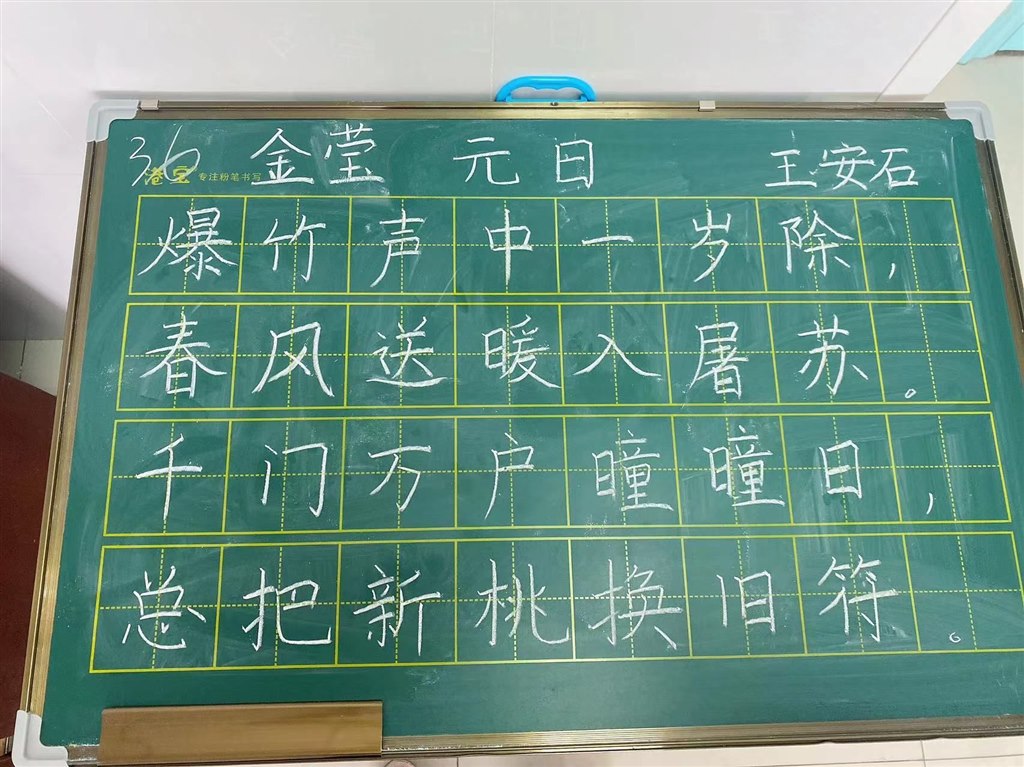 36 金莹 元日 王安石
港宝 专注粉笔书写
爆竹声中一岁除，
春风送暖入屠苏。
千门万户曈曈日，
总把新桃换旧符。